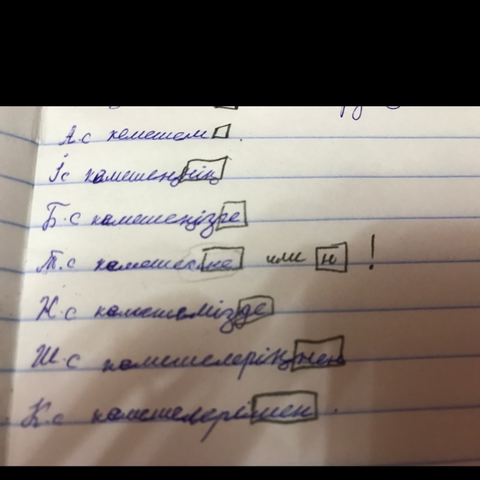 А.с көмешем .
І.с көмешеңнің
Б.с көмешеңізге
Т.с көмешесіне или н !
Ж.с көмешемізде
Ш.с көмешелеріңнен
К.с көмешелерімен .